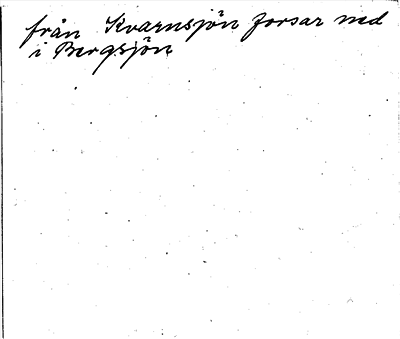 från Kvarnsjön forsar ned
i Bergsjön